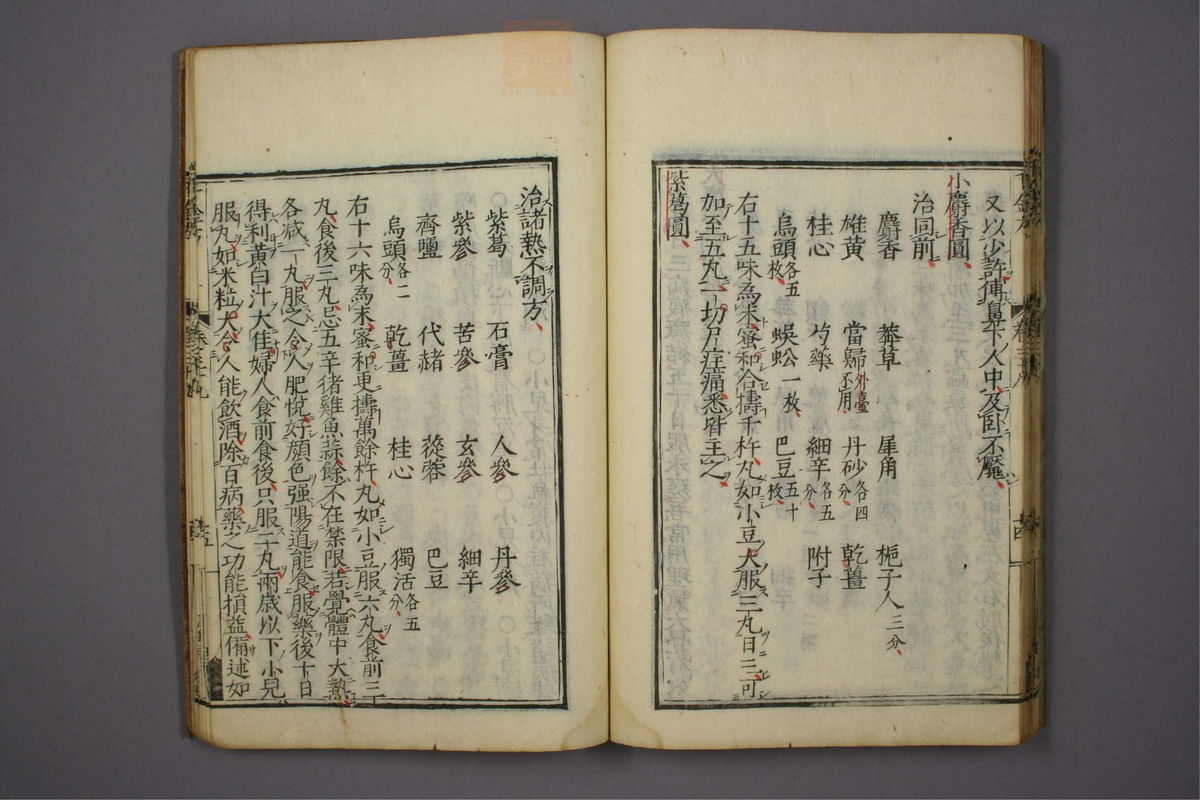 又以少許傅鼻下人中及卧不魘
小麝香圓
治同前
麝香 莽草 犀角 梔子人三分
雄黃 當歸外臺不用 丹砂各四分 乾薑
桂心 芍藥 細辛各五分 附子
烏頭各五枚 蜈蚣一枚 巴豆五十枚
右十五味為末蜜和合擣千杵丸如小豆大服三丸日三可
加至五丸一切尸疰痛悉皆主之
紫葛圓
治諸熱不調方
紫葛 石膏 人參 丹參
紫參 苦參 玄參 細辛
齊鹽 代赭 蓯蓉 巴豆
烏頭各二分 乾薑 桂心 獨活各五分
右十六味為末蜜和更擣萬餘杵丸如小豆服六丸食前三
丸食後三丸忌五辛猪雞魚蒜餘不在禁限若覺體中大熱
各减一丸服之令人肥悅好顏色强陽道能食服藥後十日
得利黃白汁大佳婦人食前食後只服二丸兩歲以下小兒
服丸如米粒大令人能飲酒除百病藥之功能損益備述如